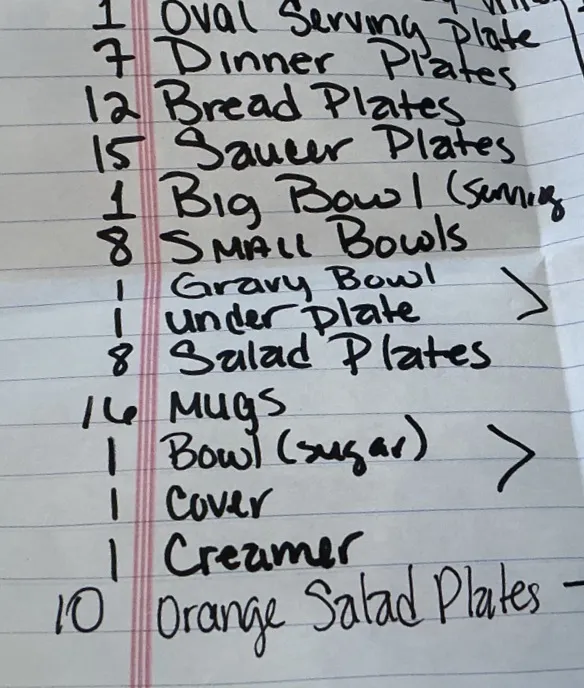 1 Oval Serving Plate
7 Dinner Plates
12 Bread Plates
15 Saucer Plates
1 Big Bowl (Serving
8 SMALL Bowls
1 Gravy Bowl
1 under plate
8 Salad Plates
16 MUGS
1 Bowl (sugar)
1 Cover
1 Creamer
10 Orange Salad Plates -